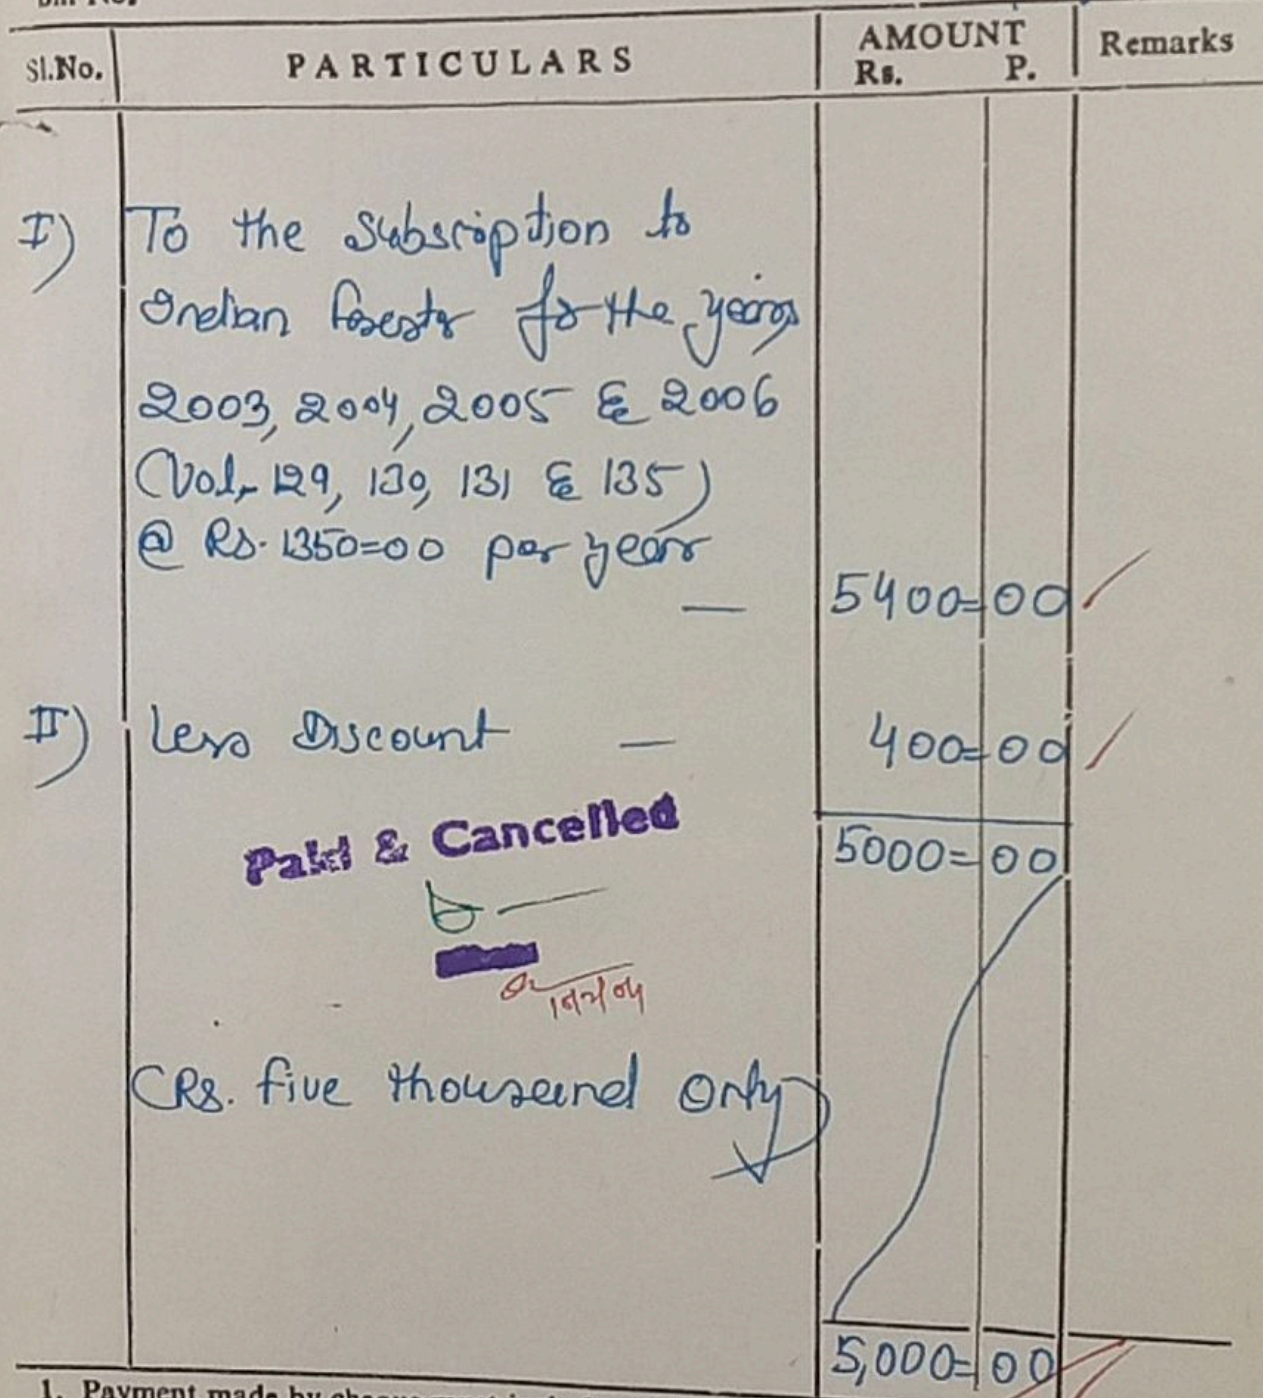 Sl.No. PARTICULARS AMOUNT Remarks
Rs. P.
I) To the Subscription to
Indian Forester for the years
2003, 2004, 2005 & 2006
(Vol. 129, 130, 131 & 135)
@ Rs. 1350=00 per year
— 5400=00
II) Less Discount — 400=00
5000=00
Paid & Cancelled
(Rs. five thousand only)
5,000=00
1. Payment made by cheque